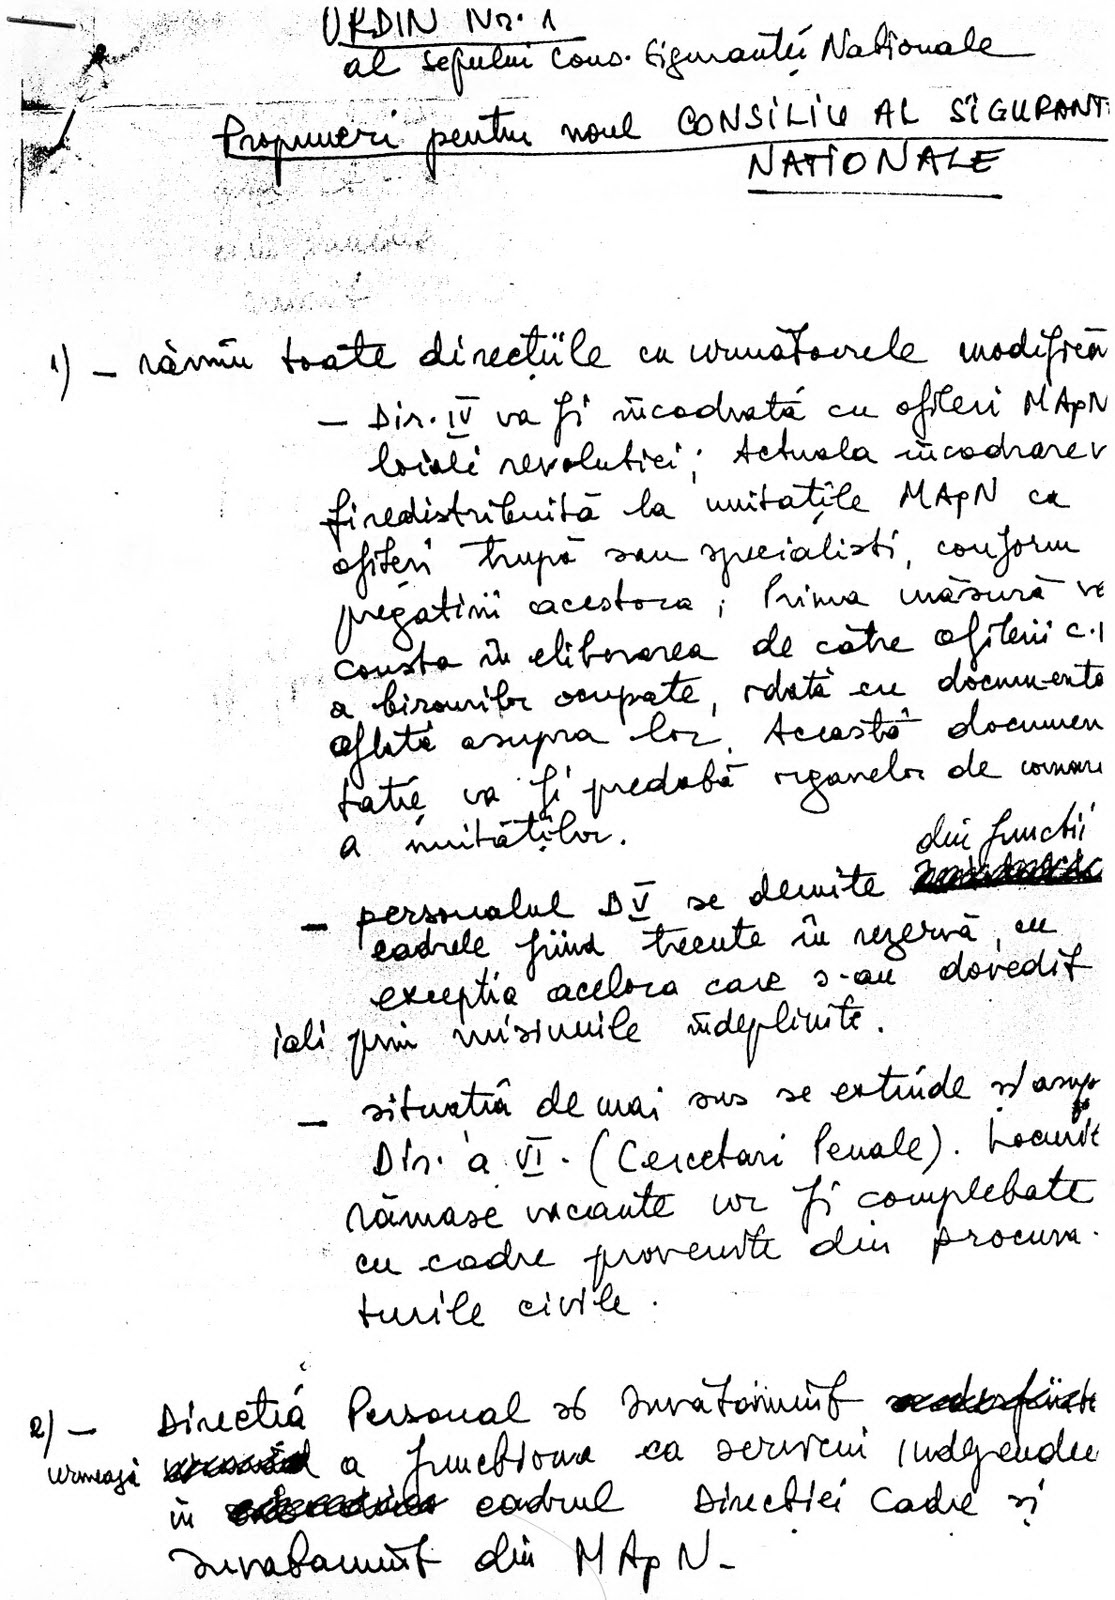 ORDIN Nr. 1
al șefului Cons. Siguranței Naționale
Propuneri pentru noul CONSILIU AL SIGURANT
NAȚIONALE
1) – rămîn toate direcțiile cu următoarele modifică
– Dir. IV va fi încadrată cu ofițeri MApN
loiali revoluției; Actuala încadrare v
fi redistribuită la unitățile MApN ca
ofițeri trupă sau specialiști, conform
pregătirii acestora; Prima măsură va
consta în eliberarea de către ofițerii c.i
a birourilor ocupate, odată cu documenta
aflată asupra lor. Această documen
tație va fi predată organelor de coman
a unităților.
din funcții
– personalul D V se demite
cadrele fiind trecute în rezervă, cu
excepția acelora care s-au dovedit
iali prin misiunile îndeplinite.
– situația de mai sus se extinde și asup
Dir. a VI. (Cercetari Penale). Locurile
rămase vacante vor fi completate
cu cadre provenite din procura-
turile civile.
2) – Direcția Personal și Învățămînt
urmează a funcționa ca serviciu independe
în cadrul Direcției Cadre și
Învățămînt din MApN–